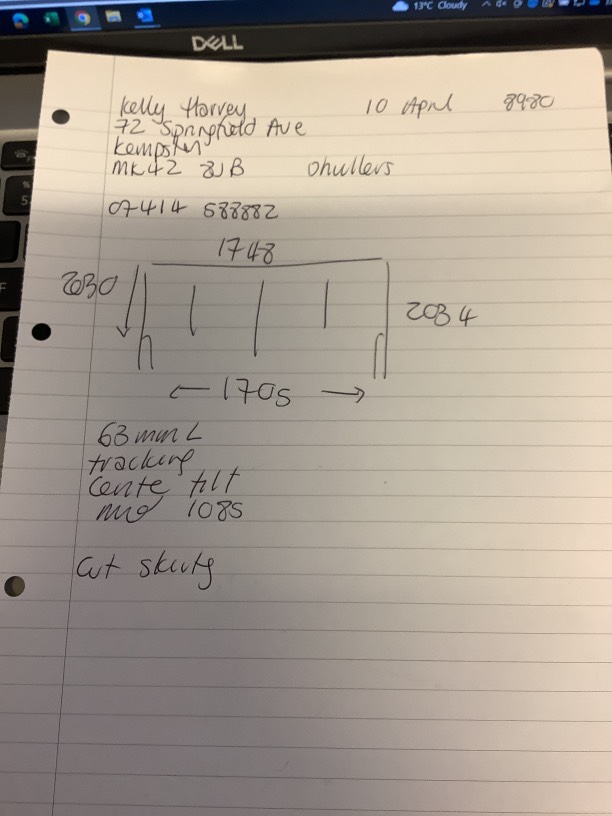 13°C Cloudy
DELL
Kelly Harvey 10 April 8980
72 Springfield Ave
Kempston
MK42 8JB
07414 688882
1748
2030
2034
← 1705 →
63mm L
tracking
Cente tilt
mid 1085
Cut skirtg